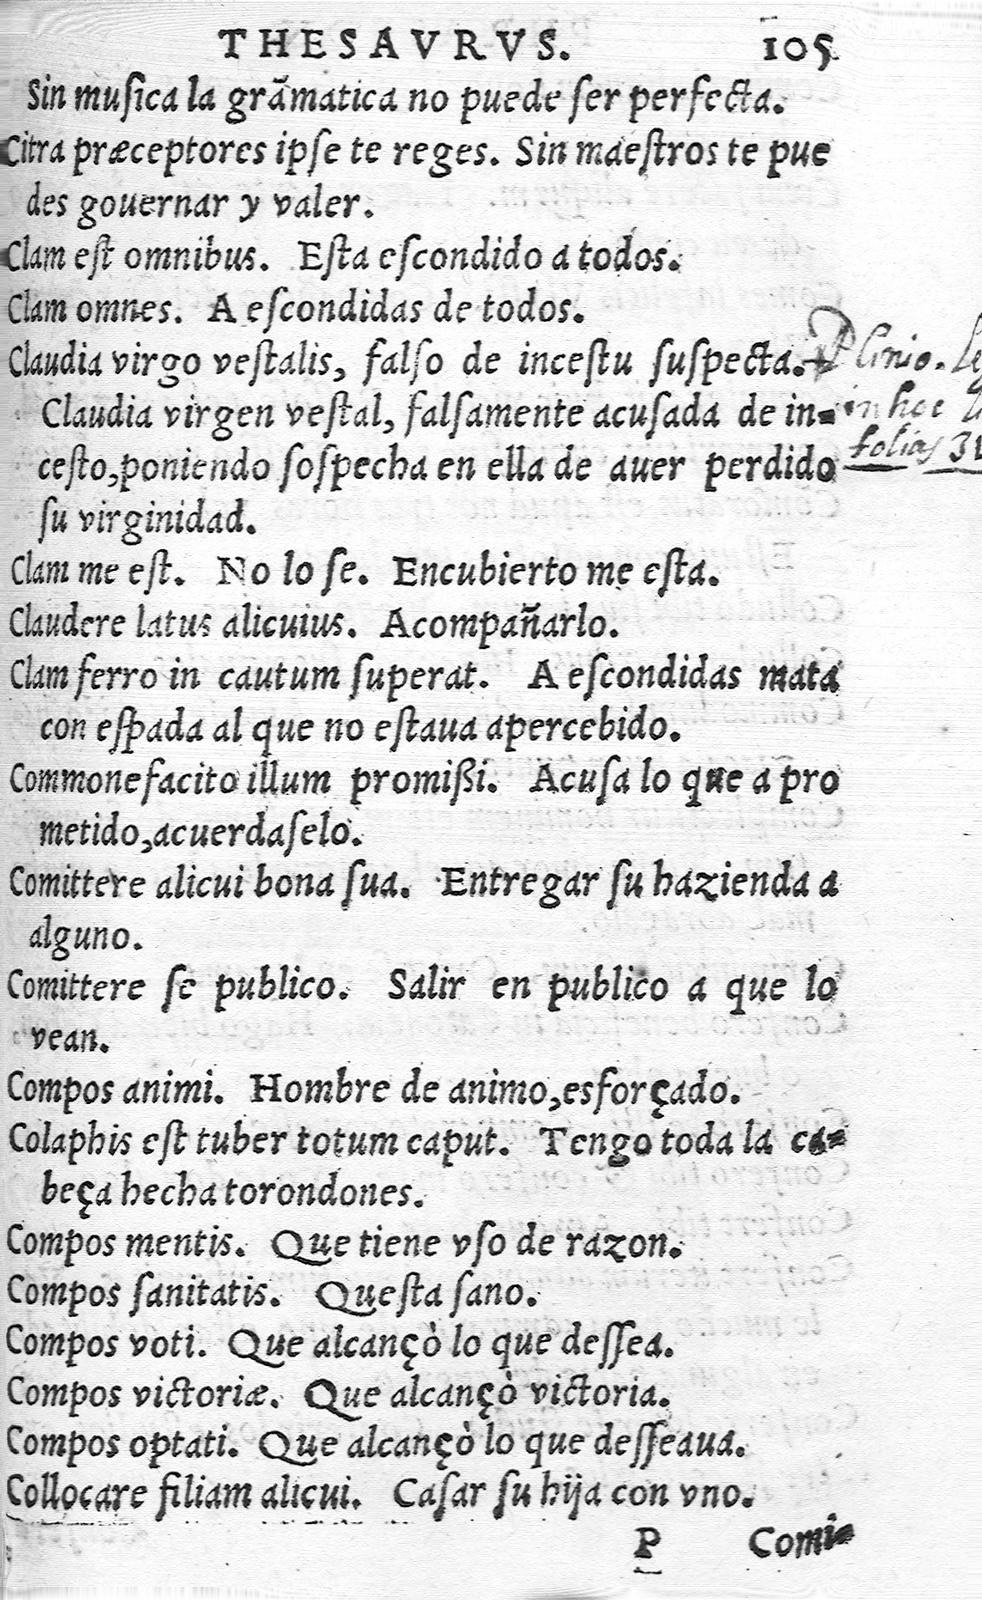 THESAVRVS. 105
Sin musica la grãmatica no puede ser perfecta.
Citra præceptores ipse te reges. Sin maestros te pue
des gouernar y valer.
Clam est omnibus. Esta escondido a todos.
Clam omnes. A escondidas de todos.
Claudia virgo vestalis, falso de incestu suspecta.
Claudia virgen vestal, falsamente acusada de in-
cesto, poniendo sospecha en ella de auer perdido
su virginidad.
Clam me est. No lo se. Encubierto me esta.
Claudere latus alicuius. Acompañarlo.
Clam ferro in cautum superat. A escondidas mata
con espada al que no estaua apercebido.
Commonefacito illum promißi. Acusa lo que a pro
metido, acuerdaselo.
Comittere alicui bona sua. Entregar su hazienda a
alguno.
Comittere se publico. Salir en publico a que lo
vean.
Compos animi. Hombre de animo, esforçado.
Colaphis est tuber totum caput. Tengo toda la ca-
beça hecha torondones.
Compos mentis. Que tiene vso de razon.
Compos sanitatis. Questa sano.
Compos voti. Que alcançò lo que dessea.
Compos victoriæ. Que alcançò victoria.
Compos optati. Que alcançò lo que desseaua.
Collocare filiam alicui. Casar su hija con vno.
P Comi-
Plinio.
in hoc
folias